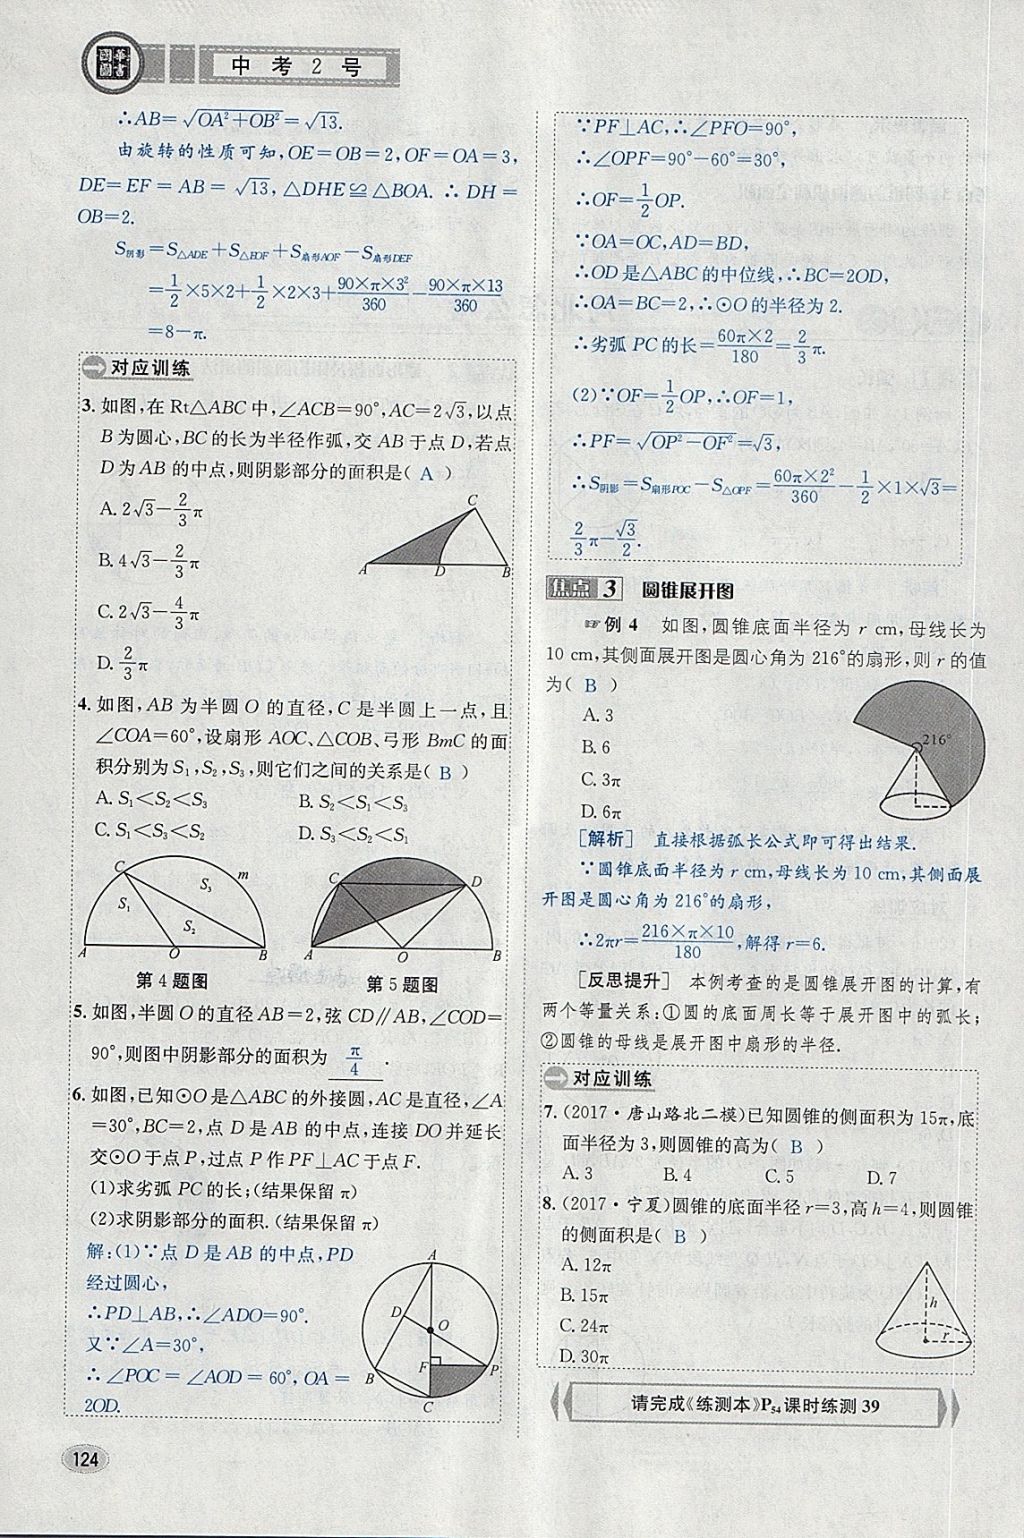 中考2号
∴AB=√(OA²+OB²)=√13.
由旋转的性质可知,OE=OB=2,OF=OA=3,
DE=EF=AB=√13,△DHE≌△BOA.∴DH=
OB=2.
S阴影=S△ADE+S△EOF+S扇形AOF-S扇形DEF
=1/2×5×2+1/2×2×3+(90×π×3²)/360-(90×π×13)/360
=8-π.
对应训练
3.如图,在Rt△ABC中,∠ACB=90°,AC=2√3,以点
B为圆心,BC的长为半径作弧,交AB于点D,若点
D为AB的中点,则阴影部分的面积是( A )
A.2√3-2/3π
B.4√3-2/3π
C.2√3-4/3π
D.2/3π
A D B C
4.如图,AB为半圆O的直径,C是半圆上一点,且
∠COA=60°,设扇形AOC、△COB、弓形BmC的面
积分别为S₁,S₂,S₃,则它们之间的关系是( B )
A.S₁<S₂<S₃ B.S₂<S₁<S₃
C.S₁<S₃<S₂ D.S₃<S₂<S₁
C m S₃ S₁ S₂ A O B
C D A O B
第4题图 第5题图
5.如图,半圆O的直径AB=2,弦CD∥AB,∠COD=
90°,则图中阴影部分的面积为 π/4 .
6.如图,已知⊙O是△ABC的外接圆,AC是直径,∠A
=30°,BC=2,点D是AB的中点,连接DO并延长
交⊙O于点P,过点P作PF⊥AC于点F.
(1)求劣弧PC的长;(结果保留π)
(2)求阴影部分的面积.(结果保留π)
解:(1)∵点D是AB的中点,PD
经过圆心,
∴PD⊥AB,∴∠ADO=90°.
又∵∠A=30°,
∴∠POC=∠AOD=60°,OA=
2OD.
A D O F P B C
∵PF⊥AC,∴∠PFO=90°,
∴∠OPF=90°-60°=30°,
∴OF=1/2OP.
∵OA=OC,AD=BD,
∴OD是△ABC的中位线,∴BC=2OD,
∴OA=BC=2,∴⊙O的半径为2.
∴劣弧PC的长=(60π×2)/180=2/3π.
(2)∵OF=1/2OP,∴OF=1,
∴PF=√(OP²-OF²)=√3,
∴S阴影=S扇形POC-S△OPF=(60π×2²)/360-1/2×1×√3=
2/3π-√3/2.
焦点3 圆锥展开图
☞例4 如图,圆锥底面半径为r cm,母线长为
10 cm,其侧面展开图是圆心角为216°的扇形,则r的值
为( B )
A.3
B.6
C.3π
D.6π
216°
[解析] 直接根据弧长公式即可得出结果.
∵圆锥底面半径为r cm,母线长为10 cm,其侧面展
开图是圆心角为216°的扇形,
∴2πr=(216×π×10)/180,解得r=6.
[反思提升] 本例考查的是圆锥展开图的计算,有
两个等量关系:①圆的底面周长等于展开图中的弧长;
②圆锥的母线是展开图中扇形的半径.
对应训练
7.(2017·唐山路北二模)已知圆锥的侧面积为15π,底
面半径为3,则圆锥的高为( B )
A.3 B.4 C.5 D.7
8.(2017·宁夏)圆锥的底面半径r=3,高h=4,则圆锥
的侧面积是( B )
A.12π
B.15π
C.24π
D.30π
h r
请完成《练测本》P₅₄课时练测39
124